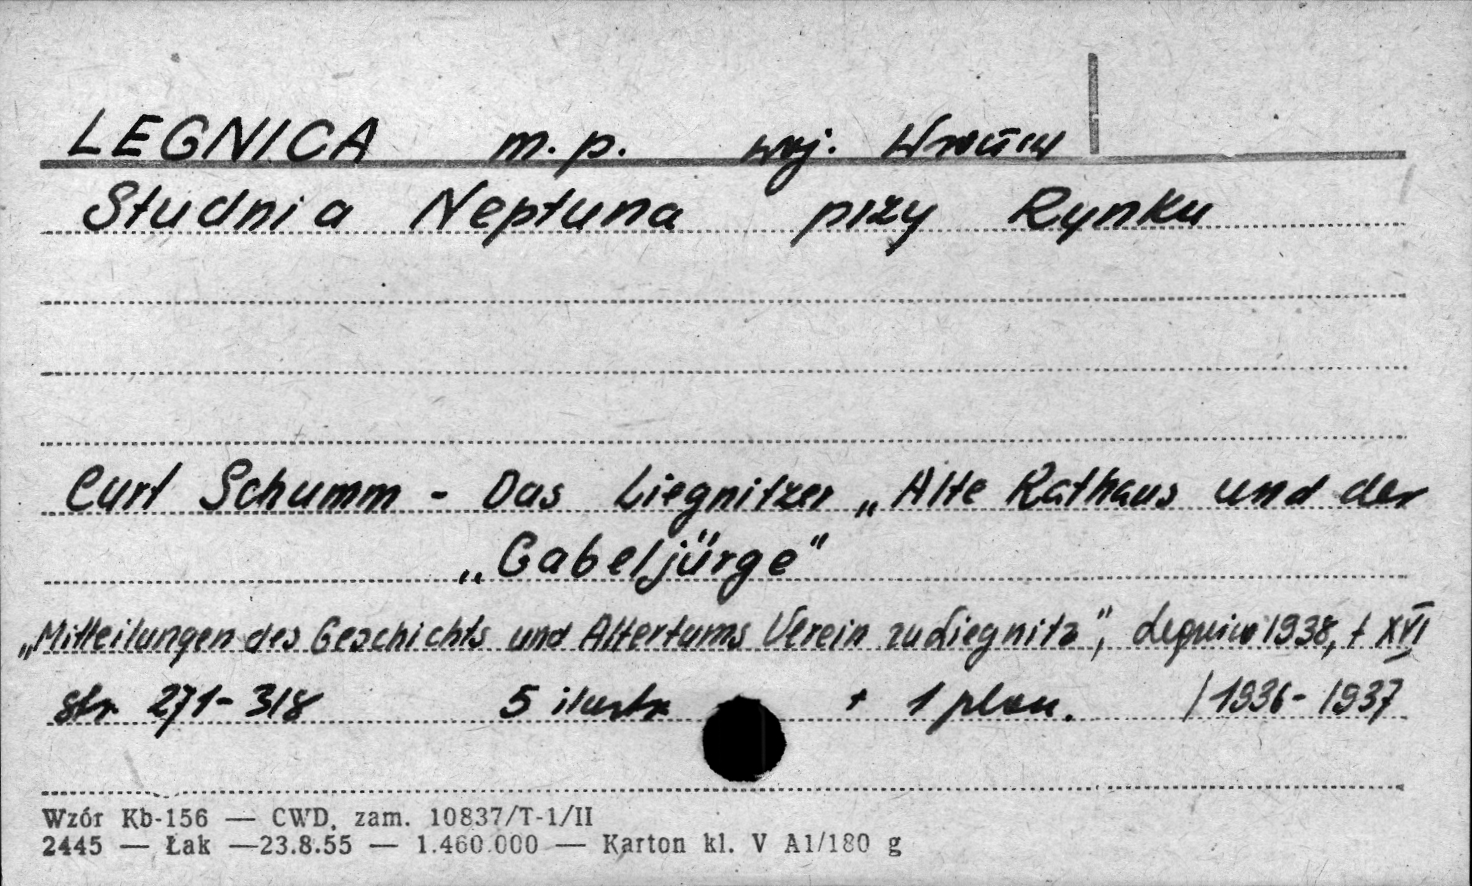 LEGNICA m. p. woj. Wrocław
Studnia Neptuna przy Rynku
Curt Schumm - Das Liegnitzer „Alte Rathaus und der
„Gabeljürge"
„Mitteilungen des Geschichts und Altertums Verein zu Liegnitz", Legnica 1938, t XVI
str. 271-318 5 ilustr + 1 plan. /1936-1937
Wzór Kb-156 — CWD, zam. 10837/T-1/II
2445 — Łak —23.8.55 — 1.460.000 — Karton kl. V A1/180 g